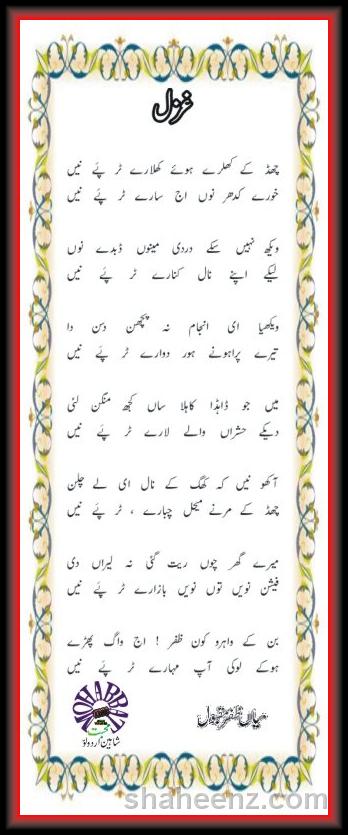 غزل
چھڈ کے کھلرے ہوئے کھلارے ٹر پئے نیں
خورے کدھر نوں اج سارے ٹر پئے نیں
ویکھ نہیں سکے دردی مینوں ڈبدے نوں
لیکے اپنے نال کنارے ٹر پئے نیں
ویکھیا ای انجام نہ پچھن دسن دا
تیرے پراہونے ہور دوارے ٹر پئے نیں
میں جو ڈاہڈا کاہلا ساں کجھ منگن لئی
دیکے حشراں والے لارے ٹر پئے نیں
آکھو نیں کہ کھگ کے نال ای لے چلن
چھڈ کے مرنے میحل چبارے ، ٹر پئے نیں
میرے گھر چوں ریت گئی نہ لیراں دی
فیشن نویں توں نویں بازارے ٹر پئے نیں
بن کے واہرو کون ظفر ! اج واگ پھڑے
ہوکے لوکی آپ مہارے ٹر پئے نیں
میاں ظفر مقبول
MOHABBAT
محبت
شاہین اردو لؤ
shaheenz.com